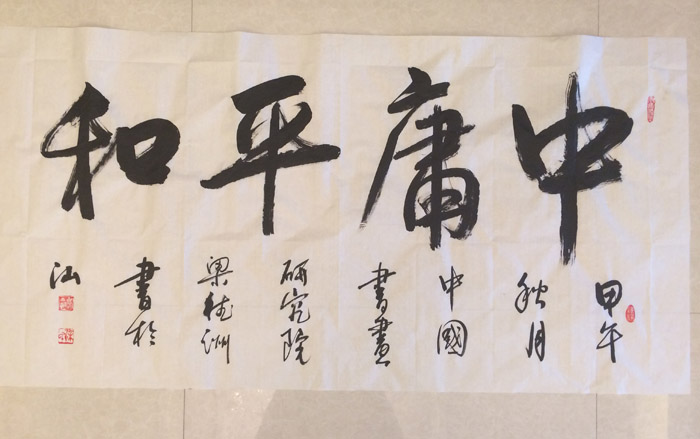 中庸平和
甲午
秋月
中國
書畫
研究院
梁
洲
書於
汕